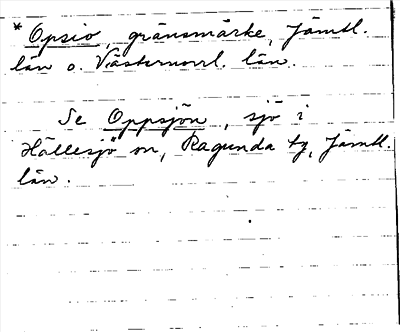 * Opsiö, gränsmärke, Jämtl.
län o. Västernorrl. län.
Se Oppsjön, sjö i
Hällesjö sn, Ragunda tg, Jämtl.
län.